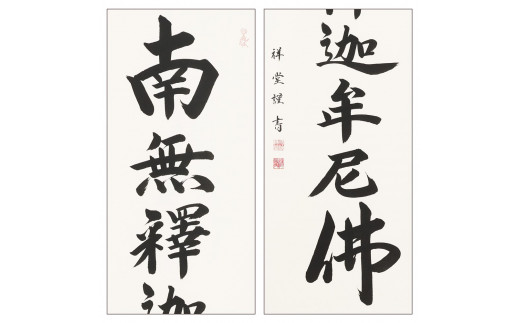 南無釋迦
釋迦牟尼佛
祥堂謹書